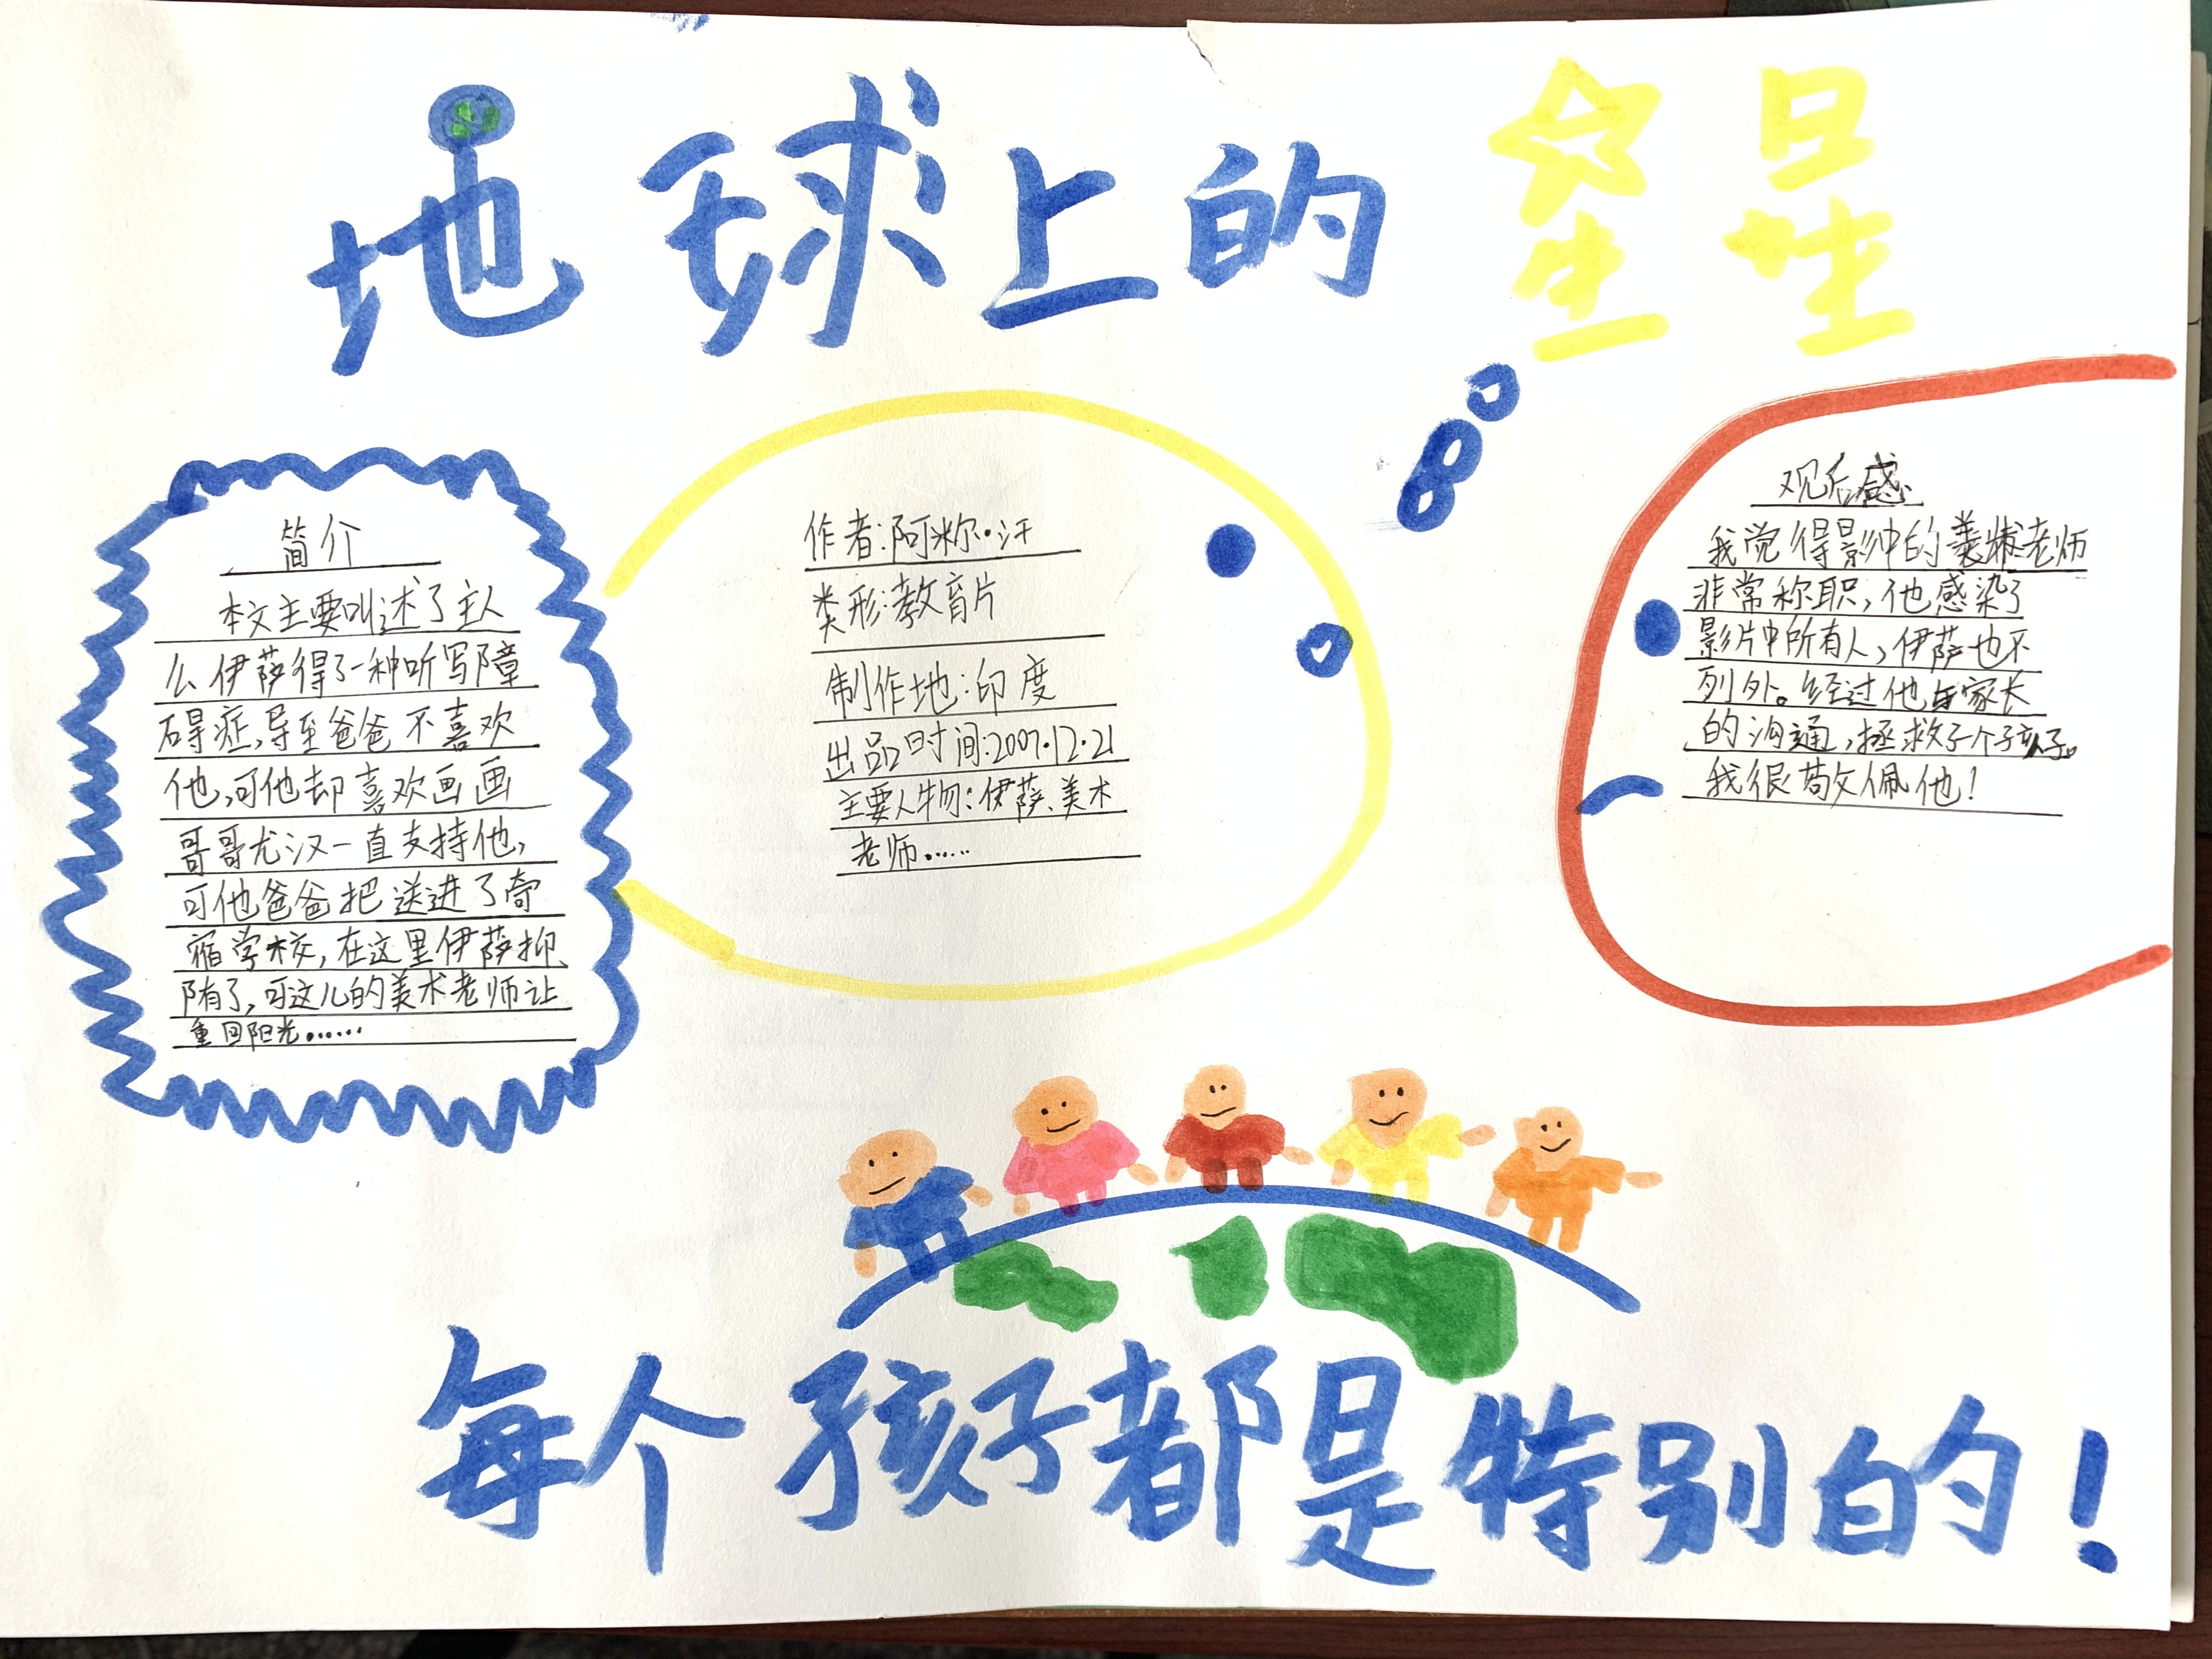 地球上的星星
简介
本文主要叫述了主人
么伊萨得了一种听写障
碍症,导至爸爸不喜欢
他,可他却喜欢画画
哥哥尤汉一直支持他,
可他爸爸把送进了寄
宿学校,在这里伊萨抑
郁了,可这儿的美术老师让
重回阳光……
作者:阿米尔·汗
类形:教育片
制作地:印度
出品时间:2007.12.21
主要人物:伊萨、美术
老师……
观后感
我觉得影中的美术老师
非常称职,他感染了
影片中所有人,伊萨也不
列外。经过他与家长
的沟通,拯救了个孩子。
我很敬佩他!
每个孩子都是特别的!